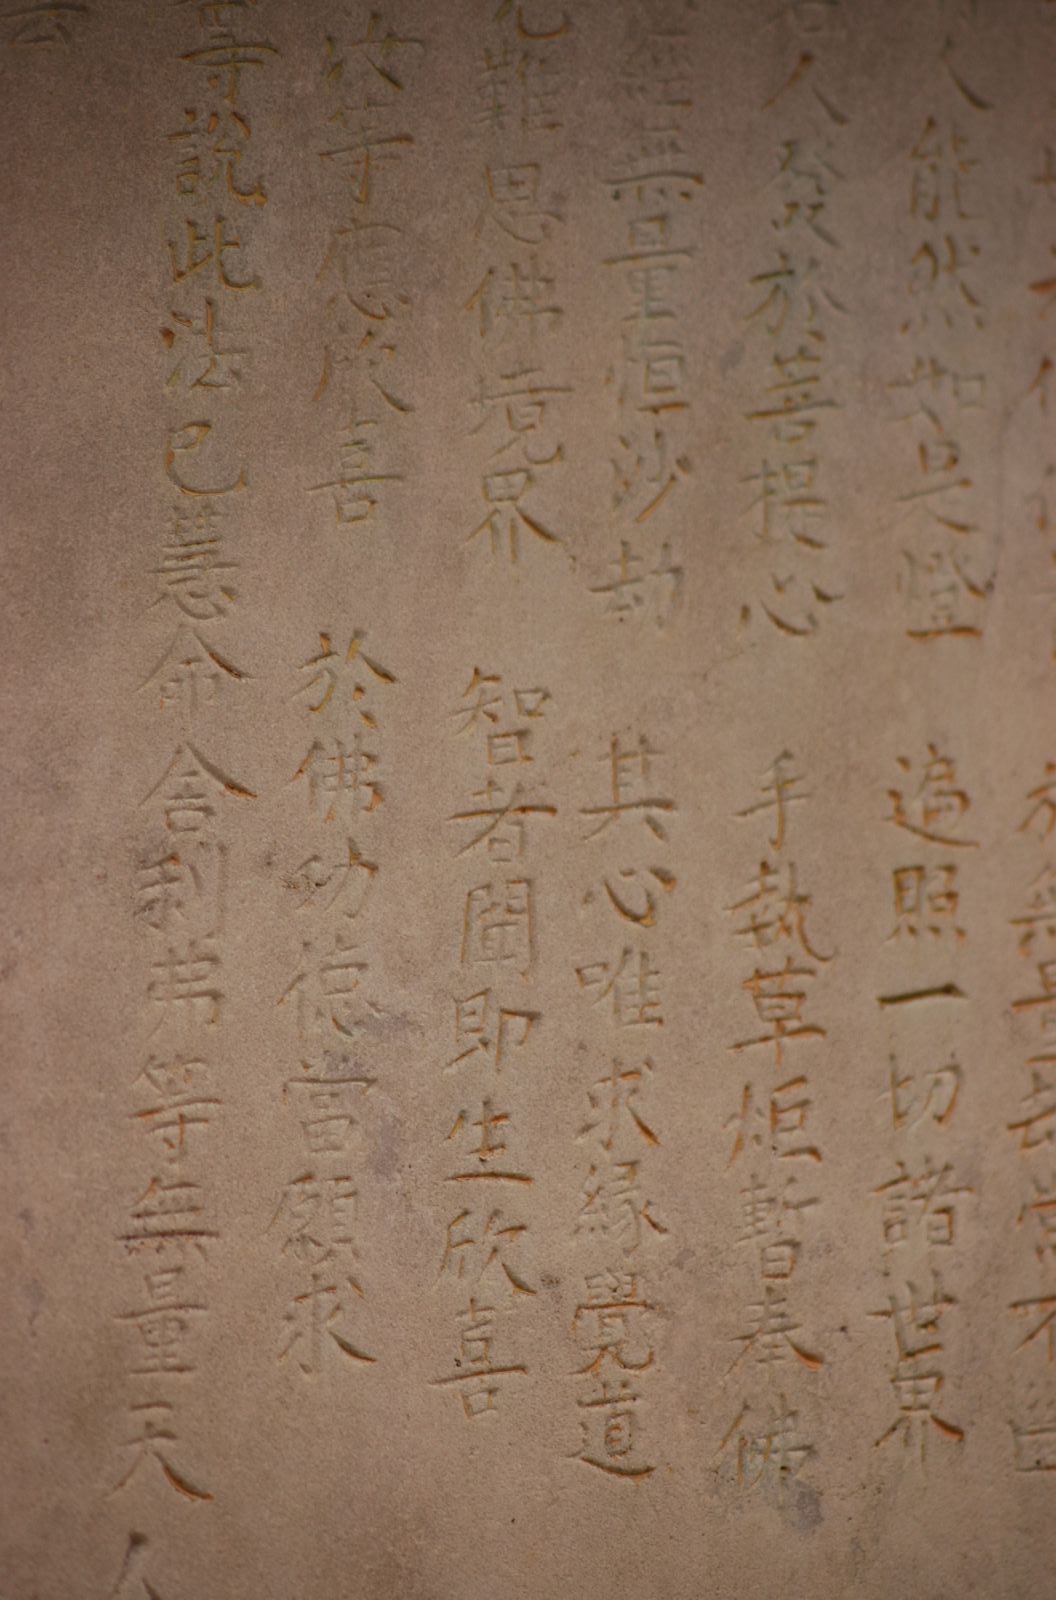 人能然如是燈 遍照一切諸世界
人發於菩提心 手執草炬暫奉佛
經無量恒沙劫 其心唯求緣覺道
難思佛境界 智者聞即生欣喜
汝等應欣喜 於佛功德當願求
等說此法已慧命舍利弗等無量天人